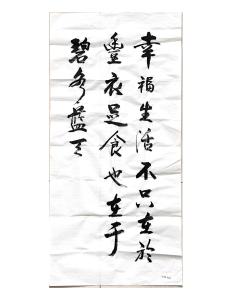 幸福生活不只在於
豐衣足食也在于
碧水藍天